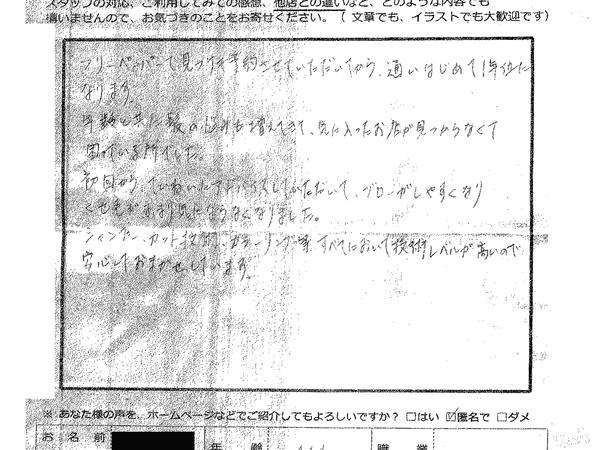 スタッフの対応、ご利用してみての感想、他店との違いなど、どのような内容でも
構いませんので、お気づきのことをお寄せください。（ 文章でも、イラストでも大歓迎です）
フリーペーパーで見つけて予約させていただいてから、通いはじめて1年位に
なります。
年数と共に髪の悩みも増えてきて、気に入ったお店が見つからなくて
困っている所でした。
初回から、ていねいにアドバイスしていただいて、ブローがしやすくなり
くせ毛があまり気にならなくなりました。
シャンプー、カット技術、カラーリング等 すべてにおいて技術レベルが高いので
安心しておまかせしています。
※ あなた様の声を、ホームページなどでご紹介してもよろしいですか？ □はい ☑匿名で □ダメ
お 名 前
年 齢
職 業